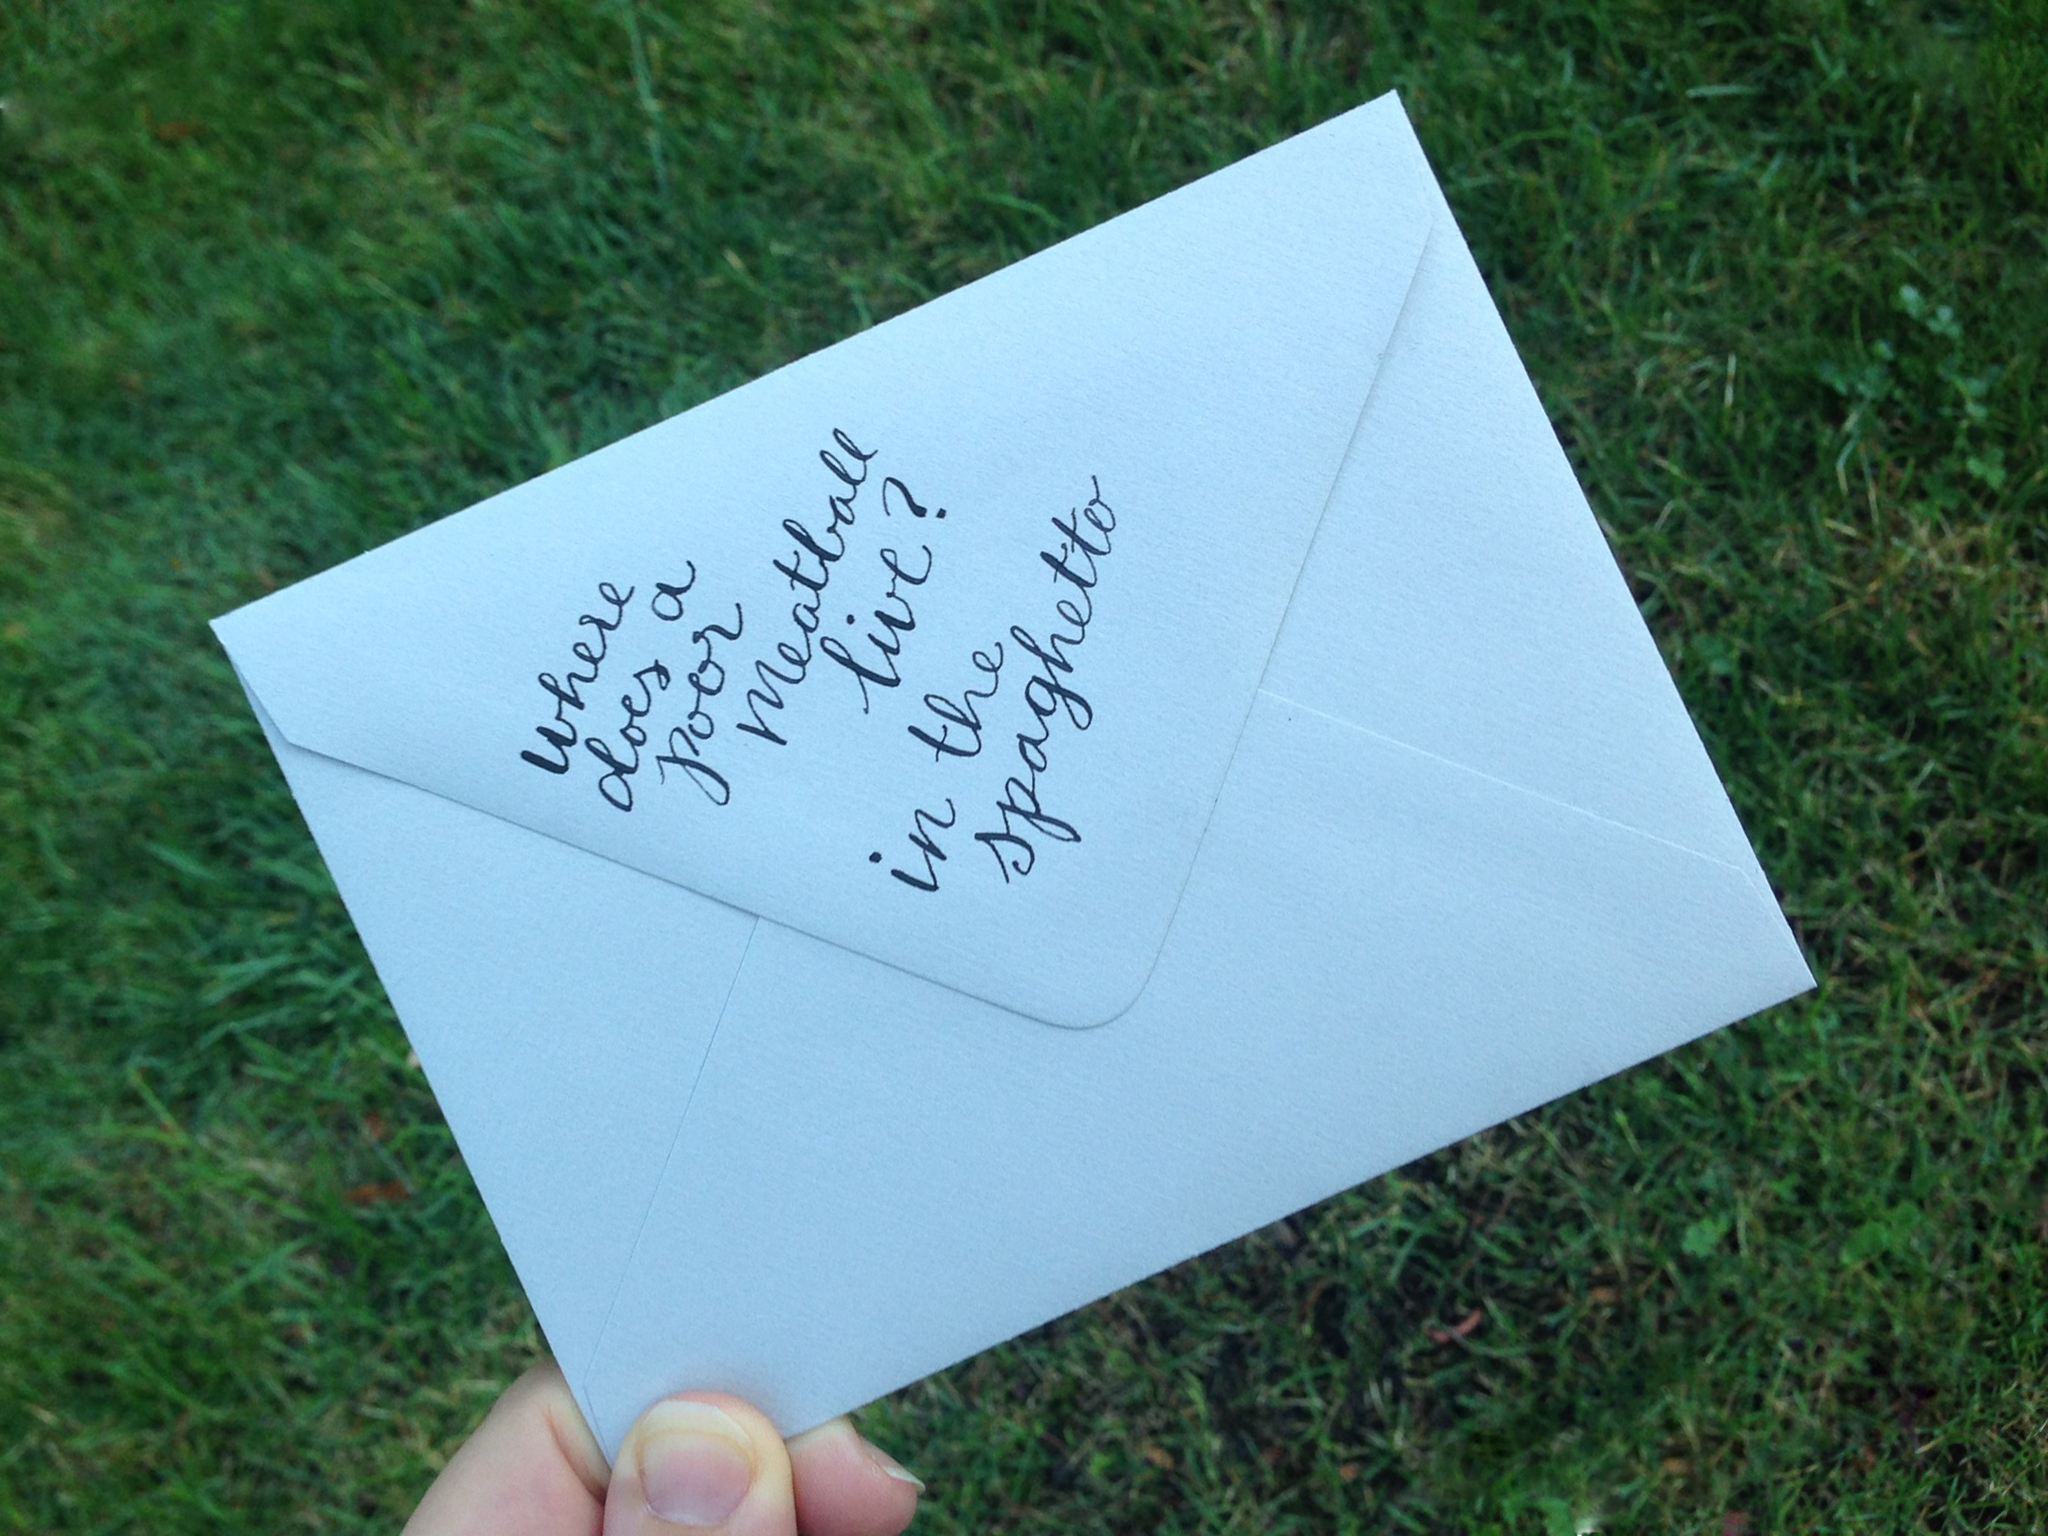 where
does a
poor
meatball
live?
in the
spaghetto